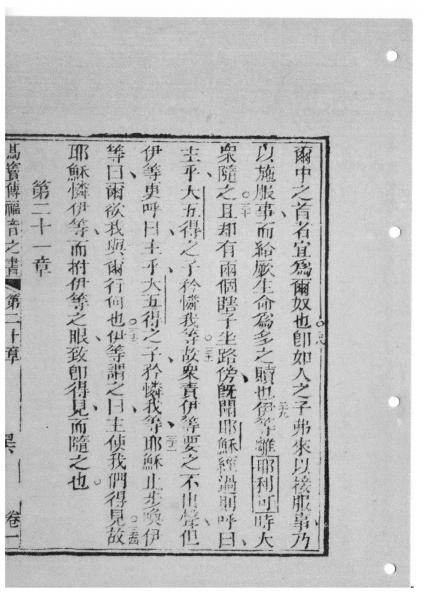 爾中之首者宜為爾奴也即如人之子弗來以接服事乃
以施服事而給厥生命為多之贖也伊等離耶利可時大
衆隨之且却有兩個瞎子坐路傍既聞耶穌經過則呼曰
主乎大五得之子矜憐我等故衆責伊等要之不出聲但
伊等更呼曰主乎大五得之子矜憐我等耶穌止步喚伊
等曰爾欲我與爾行何也伊等謂之曰主使我們得見故
耶穌憐伊等而拊伊等之眼致即得見而隨之也
第二十一章
馬竇傳福音之書 第二十章 卷一